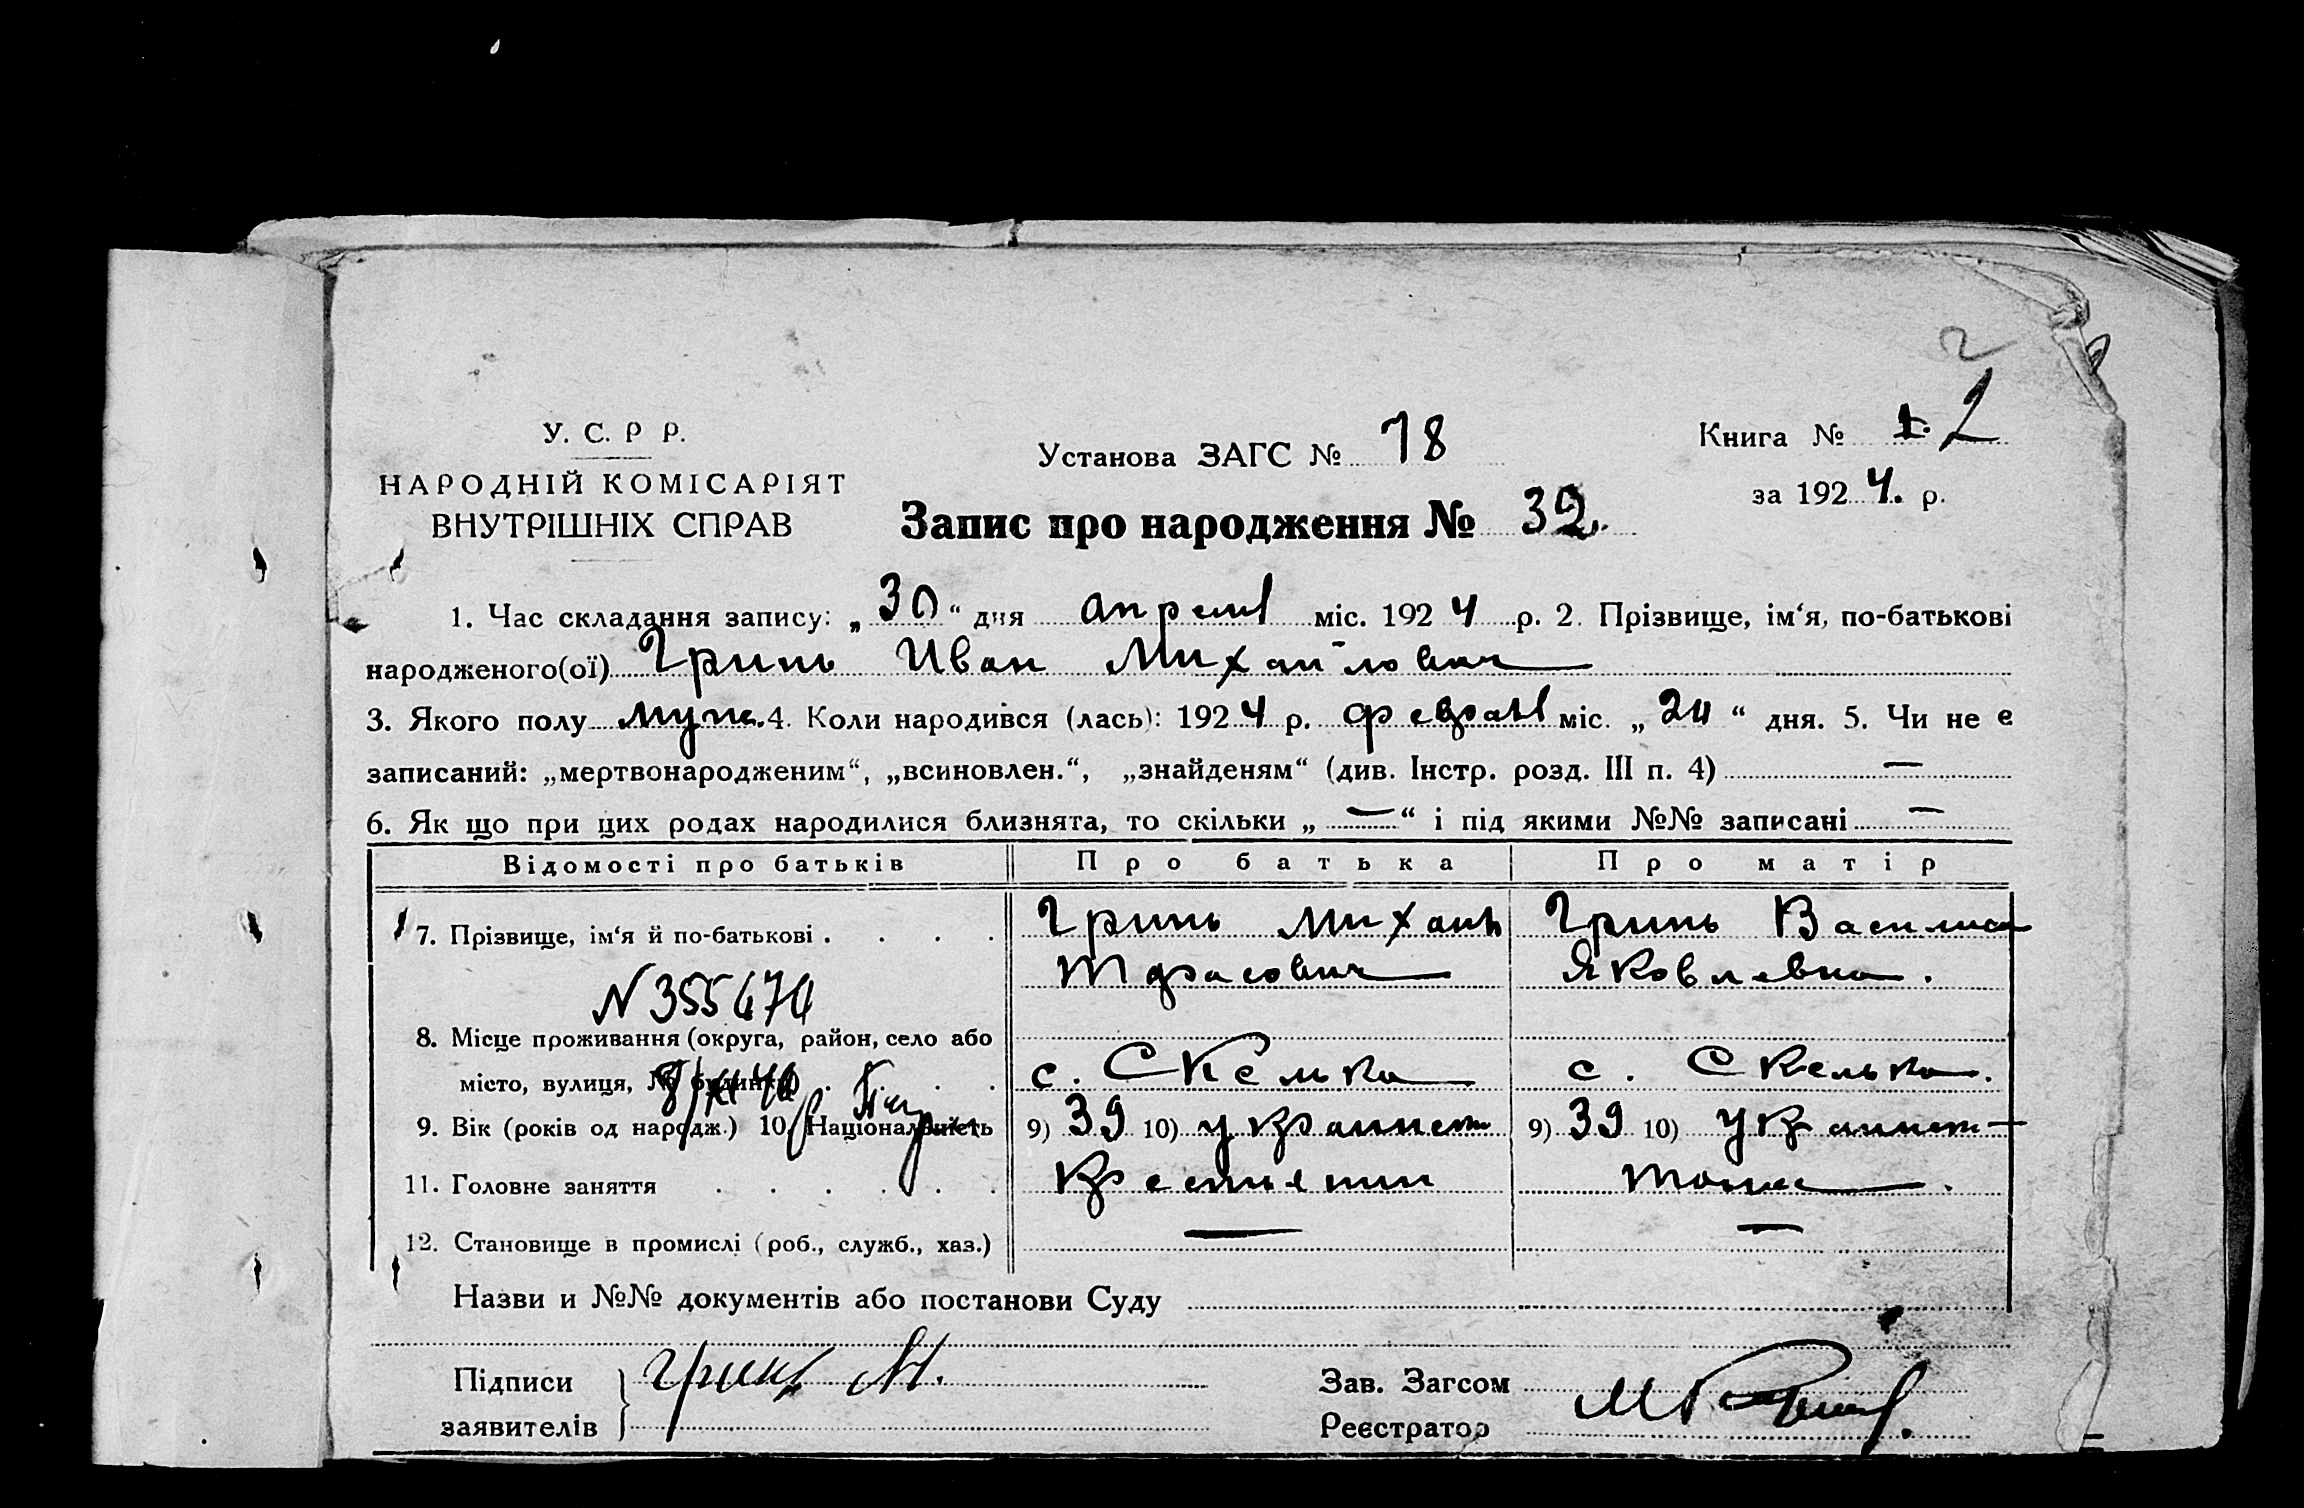 2
У. С. Р Р.
Установа ЗАГС № 18
Книга № 2
НАРОДНІЙ КОМІСАРІЯТ
за 1924. р.
ВНУТРІШНІХ СПРАВ
Запис про народження № 32.
1. Час складання запису: „30“ дня апреля міс. 1924 р. 2. Прізвище, ім‘я, по-батькові
народженого(ої) Гринь Иван Михайлович
3. Якого полу муж. 4. Коли народився (лась): 1924 р. февраля міс. „24“ дня. 5. Чи не є
записаний: „мертвонародженим“, „всиновлен.“, „знайденям“ (див. Інстр. розд. III п. 4) —
6. Як що при цих родах народилися близнята, то скільки „—“ і під якими №№ записані —
Відомості про батьків Про батька Про матір
7. Прізвище, ім‘я й по-батькові . . . . Гринь Михаил Гринь Василиса
Тарасович Яковлевна.
N 355674
8. Місце проживання (округа, район, село або
місто, вулиця, № будинку) . . . . с. Скелька с. Скелька.
9. Вік (років од народж.) 10. Національність 9) 39 10) украинец 9) 39 10)
11. Головне заняття . . . . . . Крестянин тоже.
12. Становище в промислі (роб., служб., хаз.) — —
Назви и №№ документів або постанови Суду
Підписи Гринь М.
Зав. Загсом
заявителів
Реєстратор